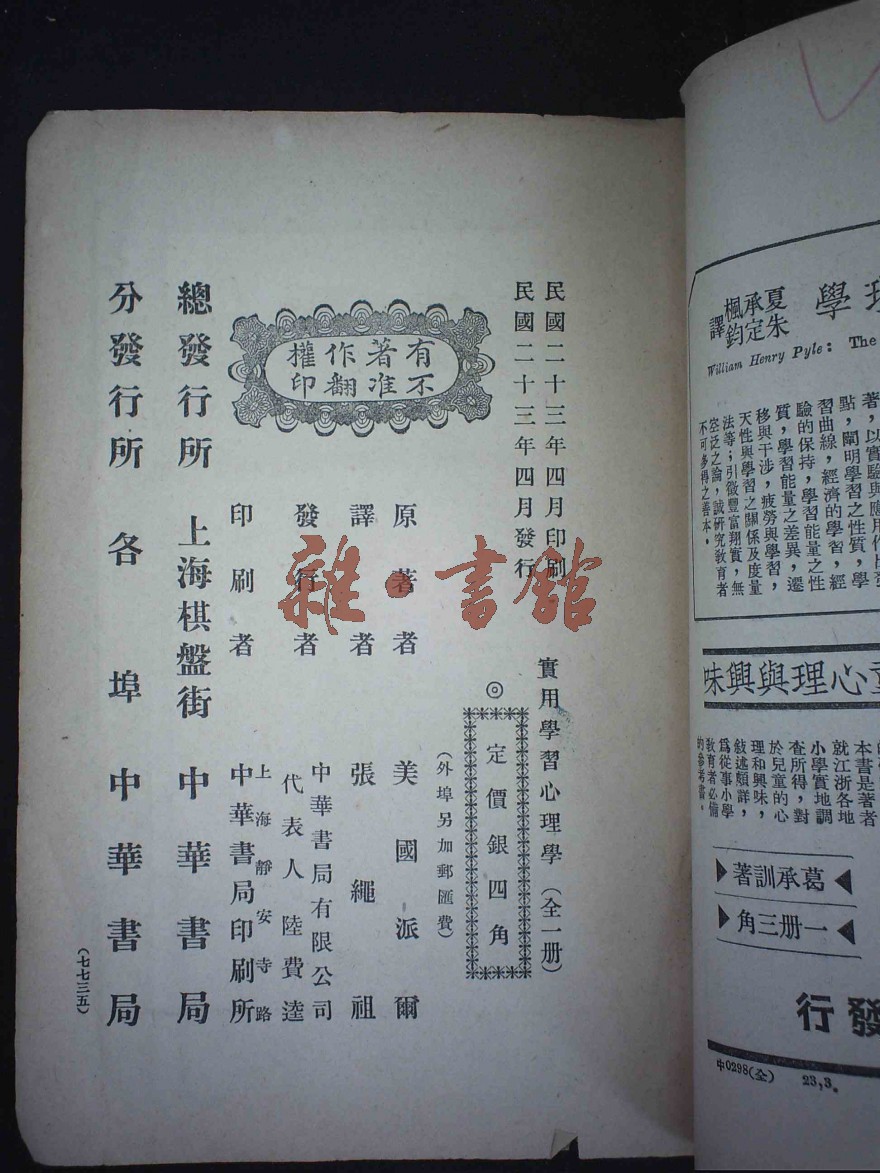 民國二十三年四月印刷
民國二十三年四月發行
實用學習心理學（全一册）
◎定價銀四角
（外埠另加郵匯費）
有著作權
不准翻印
原著者 美國派爾
譯者 張繩祖
發行者 中華書局有限公司
代表人 陸費逵
印刷者 上海靜安寺路
中華書局印刷所
總發行所 上海棋盤街 中華書局
分發行所 各埠 中華書局
（七七三五）
雜·書館
理學
夏承楓
朱定鈞
譯
William Henry Pyle: The
著，以實驗與應用作
點，闡明學習之性質，學
習曲線，經濟的學習，經
驗的保持，學習能量之性
質，學習能量之差異，遷
移與干涉，疲勞與學習，
天性與學習之關係及度量
法等；引徵豐富翔實，無
空泛之論，誠研究敎育者
不可多得之善本。
童心理與興味
本書是著者
就江浙各地
小學實地調
查所得，對
於兒童的心
理和興味，
敍述頗詳，
爲從事小學
敎育者必備
的參考書。
葛承訓著
一册三角
發行
中0298(全) 23,3.